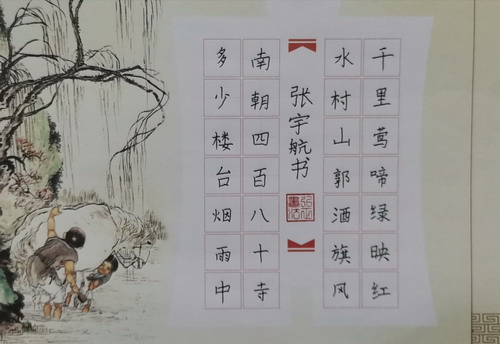 千里莺啼绿映红
水村山郭酒旗风
张宇航书
南朝四百八十寺
多少楼台烟雨中